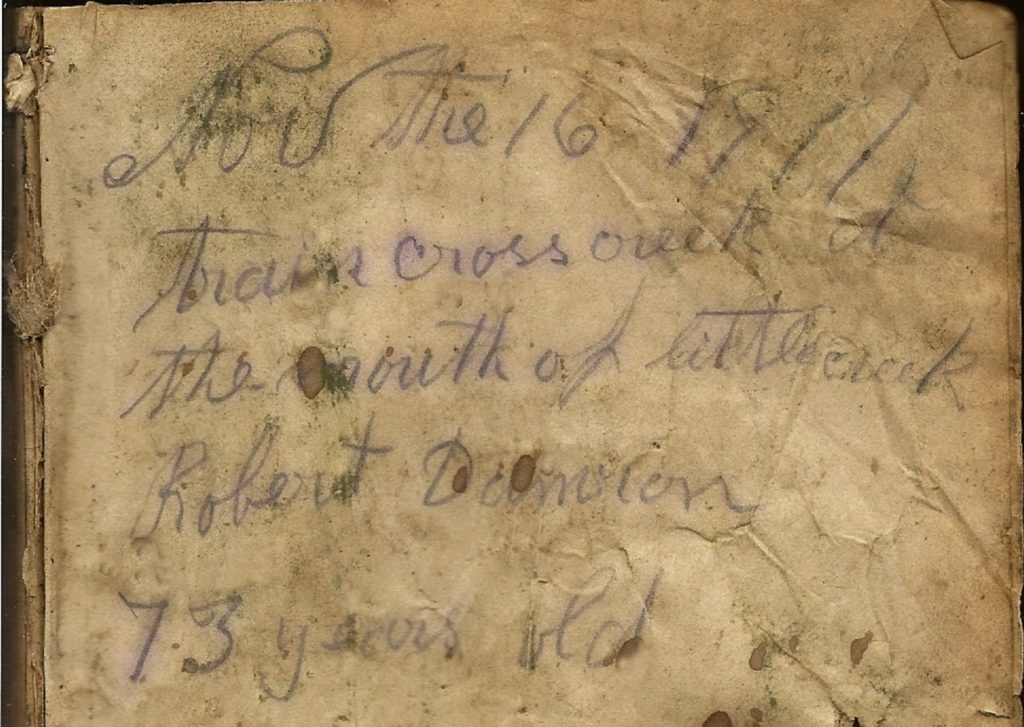 Nov the 16 1911
train cross creek at
the mouth of little creek
Robert Damron
73 years old